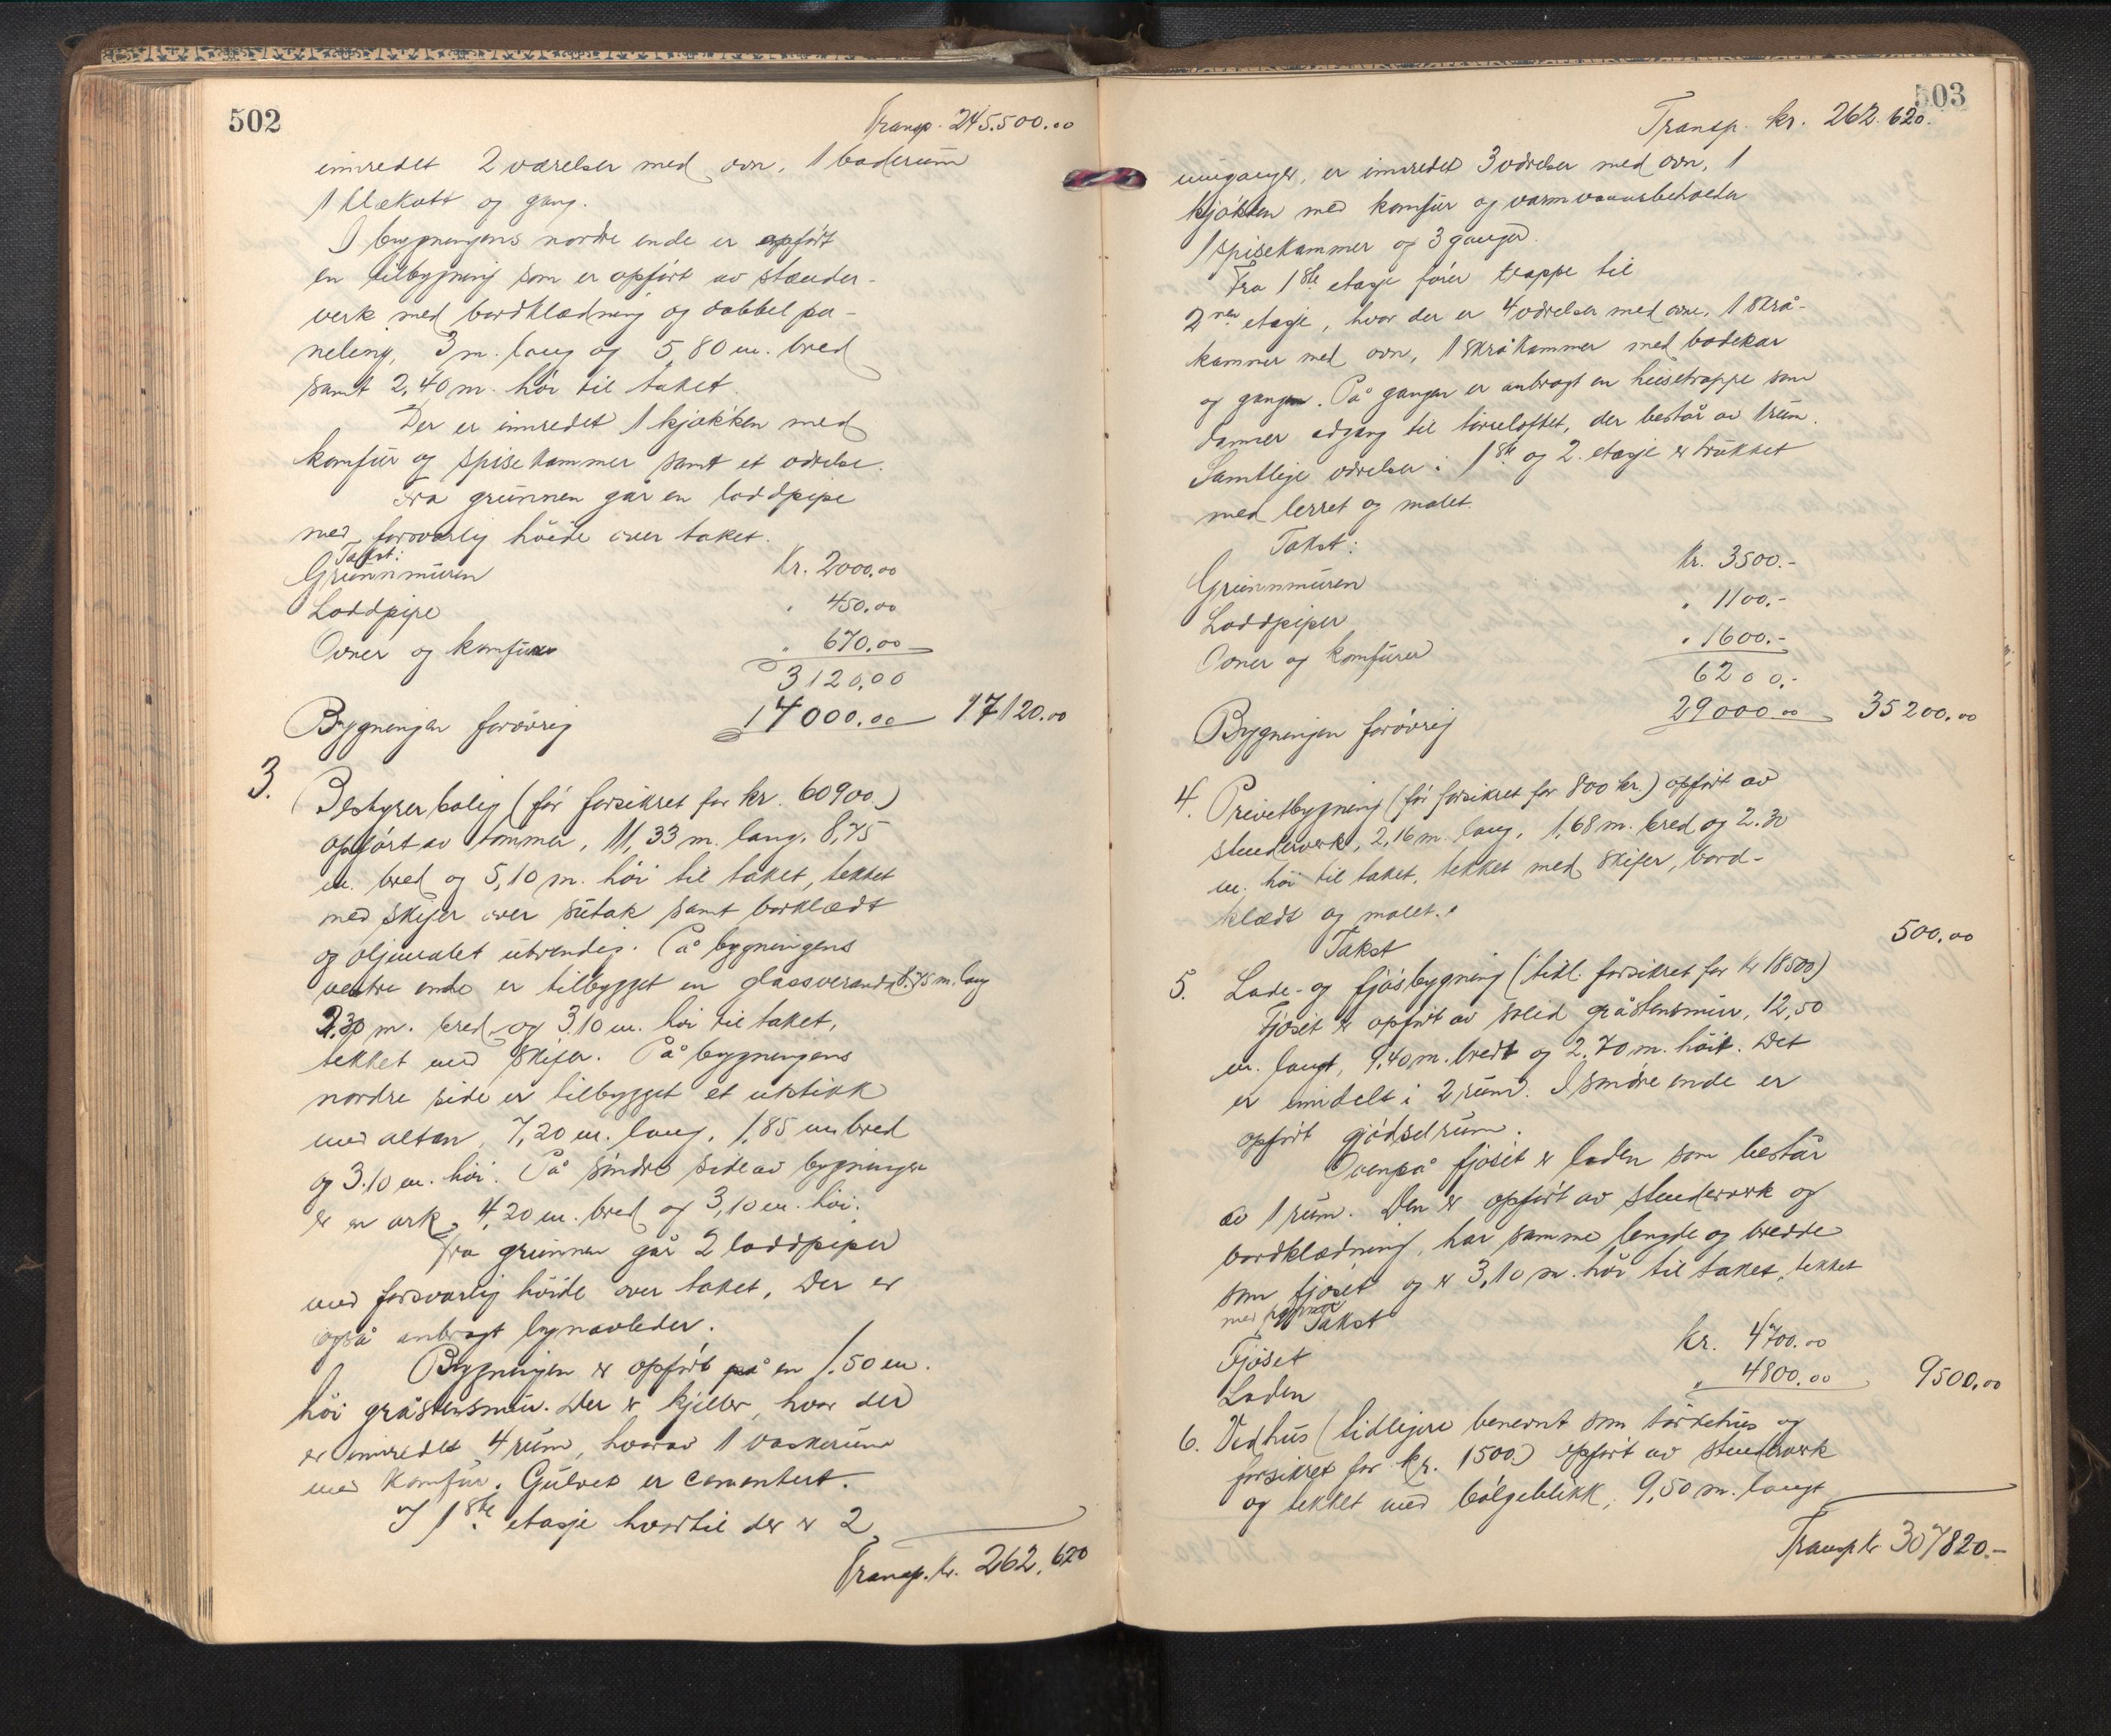 502
Transp. 245.500.00
innredet 2 værelser med ovn, 1 baderum
1 klækott og gang.
I bygningens nordre ende er opført
en tilbygning som er opført av stænder-
verk med bordklædning og dobbel pa-
neling, 3 m. lang og 5,80 m. bred
samt 2,40 m. höi til taket.
Der er innredet 1 kjøkken med
komfür og spisekammer samt et værelse.
Fra grünnen går en loddpipe
med forsvarlig höide over taket.
Takst:
Grünnmüren Kr. 2000.00
Loddpipe " 450.00
Ovner og komfürer " 670.00
3120,00
Bygningen forövrig 14000.00 17120.00
3. Bestyrerbolig (för forsikret for kr. 60900)
opfört av tömmer, 11,33 m. lang, 8,75
m. bred og 5,10 m. höi til taket, tekket
med skifer over sütak samt borklædt
og oljemalet utvendig. På bygningens
vestre ende er tilbygget en glassveranda 8.75 m. lang
2.30 m. bred og 3.10 m. höi til taket,
tekket med skifer. På bygningens
nordre side er tilbygget et utstikk
med altan, 7,20 m. lang, 1,85 m. bred
og 3.10 m. höi. På söndre side av bygningen
er en ark, 4,20 m. bred og 3,10 m. höi.
Fra grünnen går 2 loddpiper
med forsvarlig höide over taket, Der er
også anbragt lynavleder.
Bygningen er opfört på en 1.50 m.
höi gråstensmür. Der er kjeller, hvor der
er innredet 4 rüm, hvorav 1 vaskerüm
med komfür. Gülvet er cementert.
I 1ste etasje hvortil der er 2
Transp. kr. 262.620
503
Transp. kr. 262.620.
innganger, er innredet 3 værelser med ovn, 1
kjökken med komfür og varmvannsbeholder
1 spisekammer og 3 ganger.
Fra 1ste etasje förer trappe til
2nen etasje, hvor der er 4 værelser med ovne, 1 skrå-
kammer med ovn, 1 skråkammer med badekar
og gangen. På gangen er anbragt en heisetrappe som
danner adgang til törreloftet, der består av 1 rüm.
Samtlige værelser i 1ste og 2. etasje er trükket
med lerret og malet.
Takst:
Grünnmüren kr. 3500.-
Loddpiper " 1100.-
Ovner og komfürer " 1600.-
6200,-
Bygningen forövrig 29000.00 35200.00
4. Privetbygning (för forsikret for 800 kr.) opfört av
stenderverk, 2,16 m. lang, 1,68 m. bred og 2.30
m. höi til taket, tekket med skifer, bord-
klædt og malet.
Takst 500.00
5. Lade- og fjösbygning (tidl. forsikret for kr 18500)
Fjöset er opfört av solid gråstensmür, 12,50
m. langt, 9.40 m. bredt og 2.70 m. höit. Det
er inndelt i 2 rüm. I söndre ende er
opfört gjödselrüm.
Ovenpå fjöset er laden som består
av 1 rüm. Den er opfört av stenderverk og
bordklædning, har samme lengde og bredde
som fjöset og er 3,10 m. höi til taket, tekket
med
Takst
Fjöset kr. 4700.00
Laden " 4800.00 9500.00
6. Vedhus (tidligere benevnt som törkehus og
forsikret for kr. 1500.) opfört av stenderverk
og tekket med bölgeblikk, 9,50 m. langt
Transp kr 307820.-